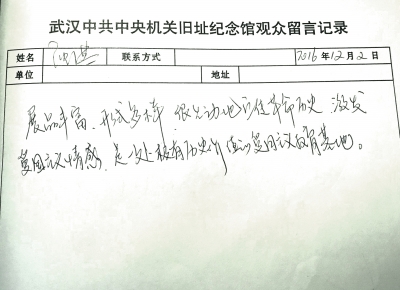 武汉中共中央机关旧址纪念馆观众留言记录
姓名 联系方式 2016年12月2日
单位 地址
展品丰富、形式多样,很生动地记住革命历史,激发
爱国主义情感,是一处极有历史价值的爱国主义教育基地。